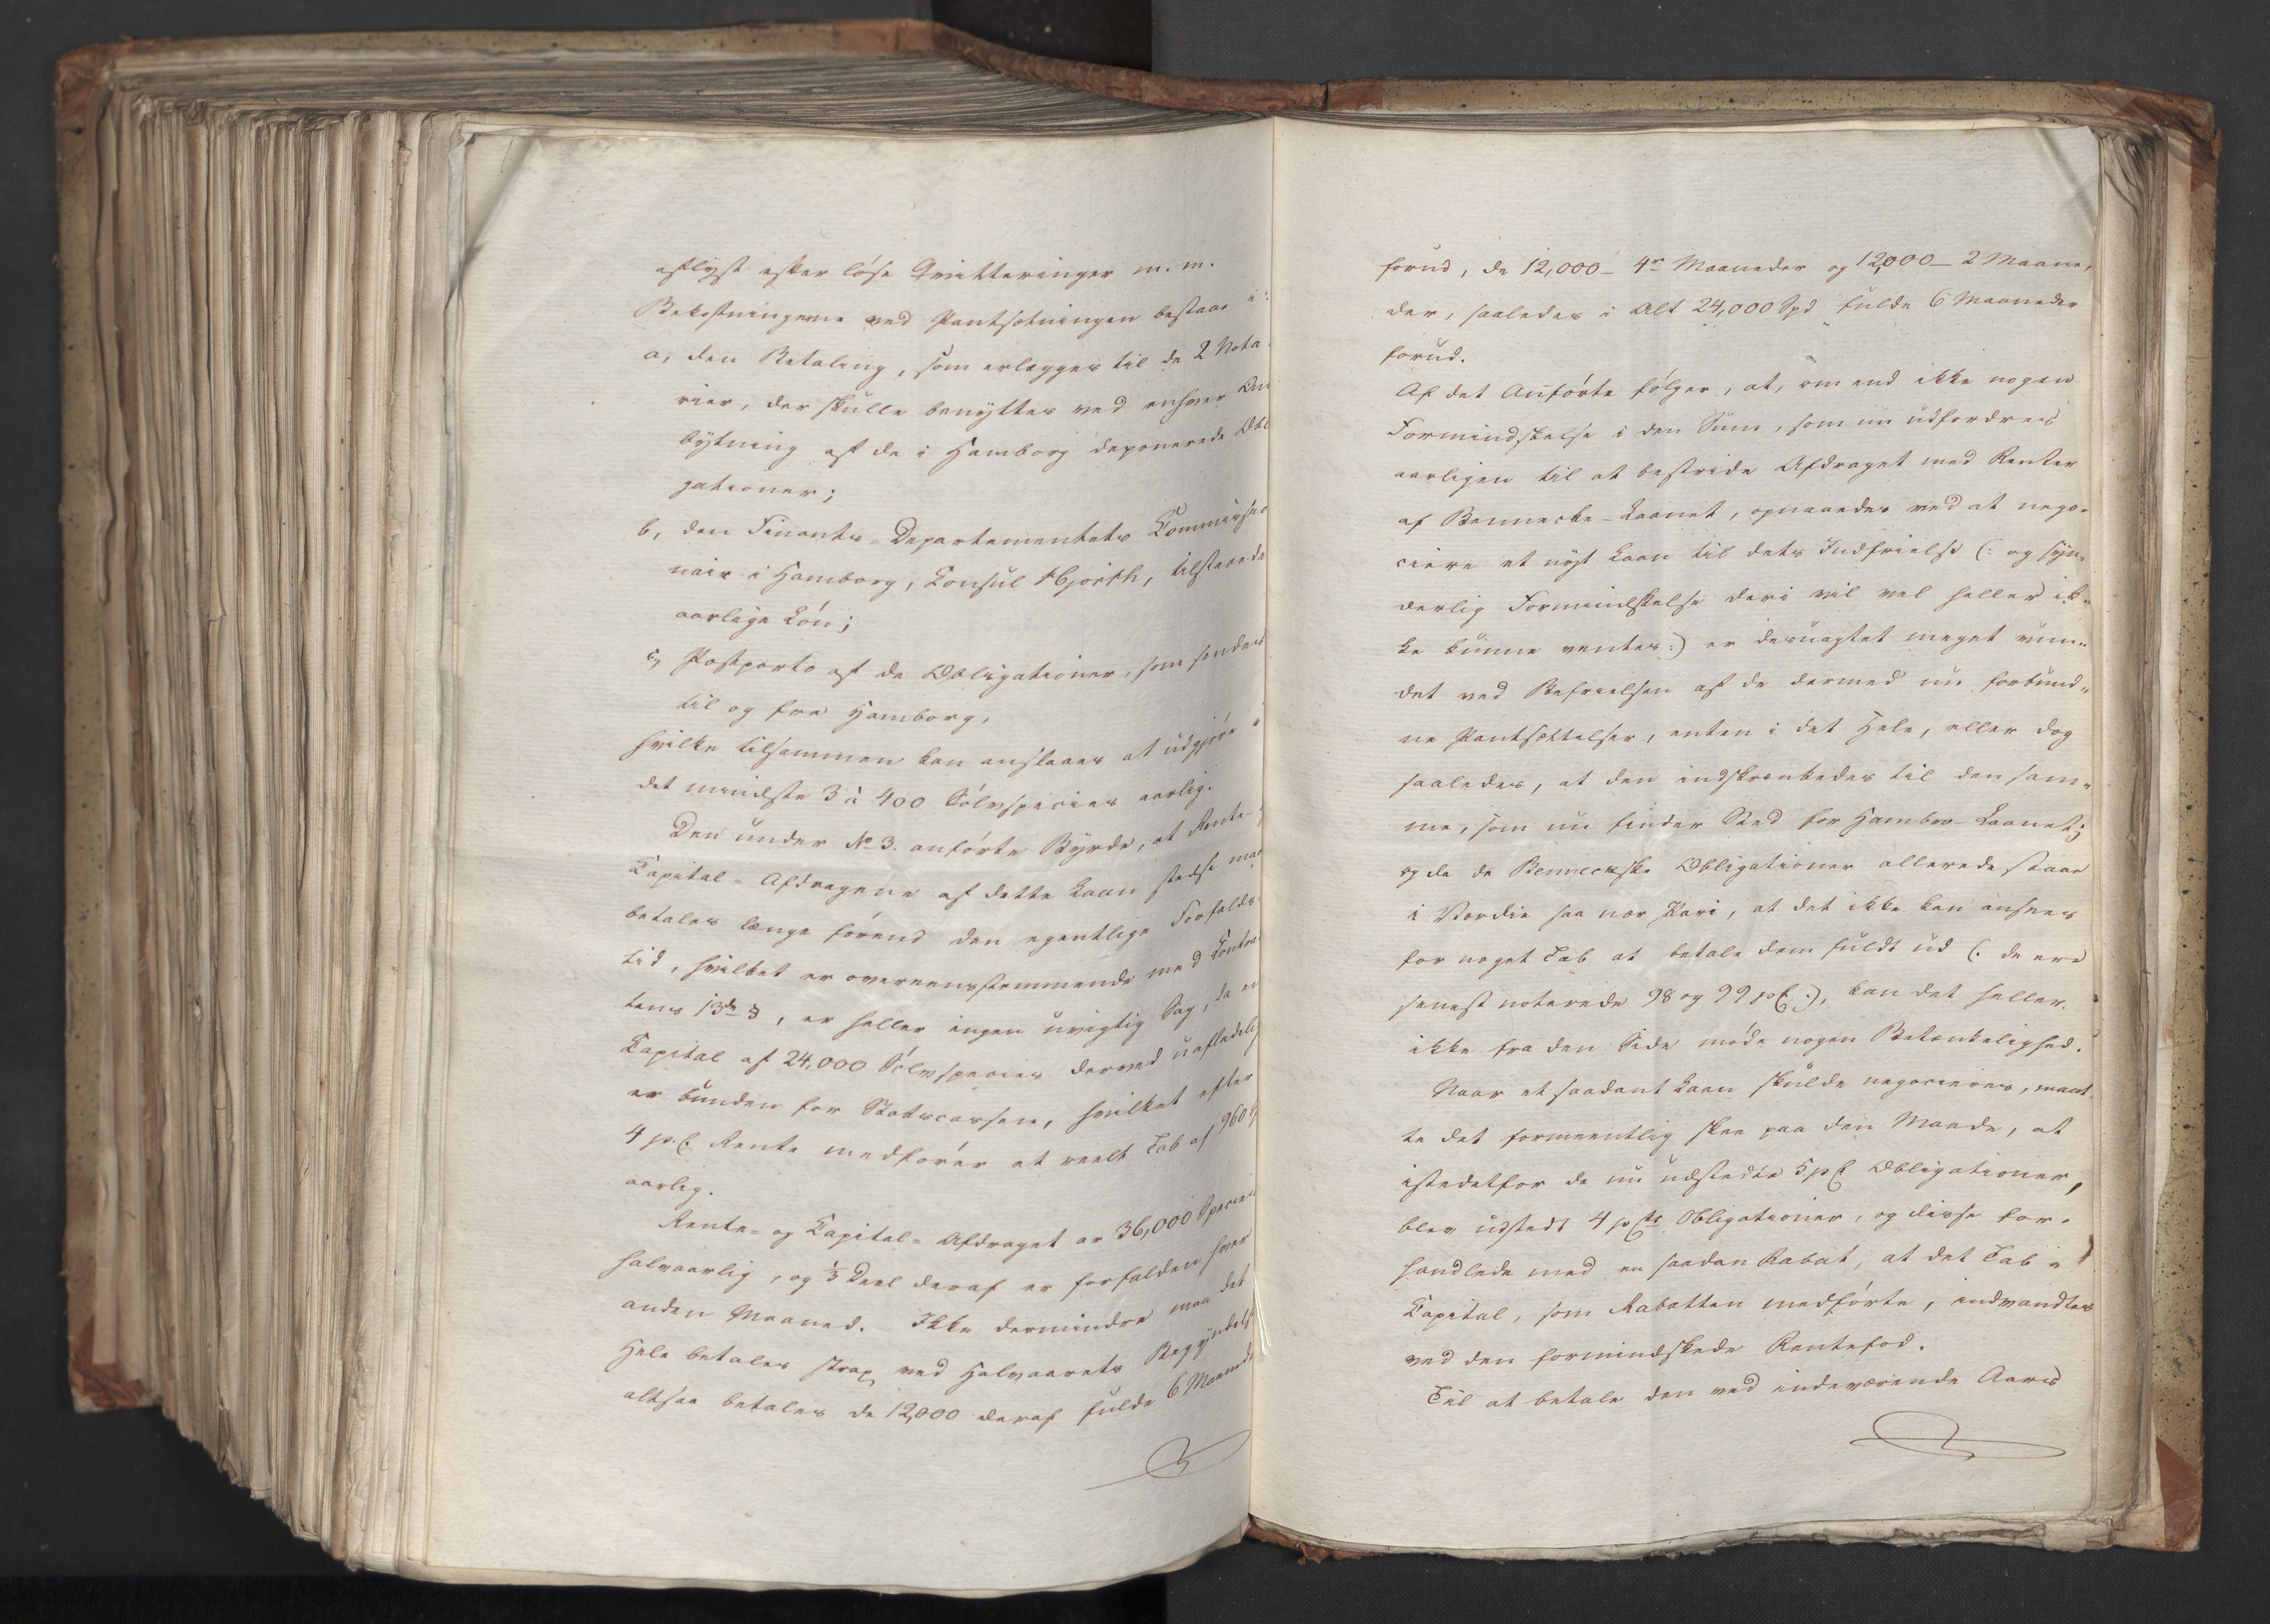 aflyst efter løse Qvitteringer m. m.
Bekostningerne ved Pantsætningen bestaae i:
a, den Betaling, som erlægges til de 2 Nota
rier, der skulle benyttes ved enhver Om
bytning af de i Hamborg deponerede Obli
gationer;
b, den Finants-Departementets Commissio
nair i Hamborg, Consul Hjorth, tilstaaede
aarlige Løn;
c, Postporto af de Obligationer, som sendes
til og fra Hamborg,
hvilke tilsammen kan anslaaes at udgjøre i
det mindste 3 à 400 Sølvspecies aarlig.
Den under No 3. anførte Byrde, at Rente-
Capital-Afdragene af dette Laan stedse maae
betales længe førend den egentlige Forfalds
tid, hvilket er overeensstemmende med Contra
tens 13de §, er heller ingen uvigtig Sag, da en
Capital af 24,000 Sølvspecies derved uafladelig
er bunden for Statscassen, hvilket efter
4 p.C. Rente medfører et reelt Tab af 960
aarlig.
Rente- og Capital-Afdraget er 36,000 Species
halvaarlig, og ⅓ Deel deraf er forfalden hver
anden Maaned. Ikke dermindre maa det
Hele betales strax ved Halvaarets Begyndelse
altsaa betales de 12,000 deraf fulde 6 Maaneder
forud, de 12,000 – 4re Maaneder og 12,000 – 2 Maane,
der, saaledes i Alt 24,000 Spd fulde 6 Maaneder
forud.
Af det Anførte følger, at, om end ikke nogen
Formindskelse i den Sum, som nu udfordres
aarligen til at bestride Afdraget med Renter
af Bennecke-Laanet, opnaaedes ved at nego-
ciere et nyt Laan til dets Indfrielse (: og syn-
derlig Formindskelse deri vil vel heller ik-
ke kunne ventes:) er desuagtet meget vun-
det ved Befrielsen af de dermed nu forbund-
ne Pantsættelser, enten i det Hele, eller dog
saaledes, at den indskrænkedes til den sam-
me, som nu finder Sted for Hambro-Laanet;
og da de Benneckske Obligationer allerede staae
i Værdie saa nær Pari, at det ikke kan ansees
for noget Tab at betale dem fuldt ud (: de ere
senest noterede 98 og 99 p.C. :), kan det heller
ikke fra den Side møde nogen Betænkelighed.
Naar et saadant Laan skulde negocieres, maat-
te det formeentlig skee paa den Maade, at
istedetfor de nu udstedte 5 p.C. Obligationer,
blev udstedt 4 p.Cts Obligationer, og disse for-
handlede med en saadan Rabat, at det Tab i
Capital, som Rabatten medførte, indvandtes
ved den formindskede Rentefod.
Til at betale den ved indeværende Aars